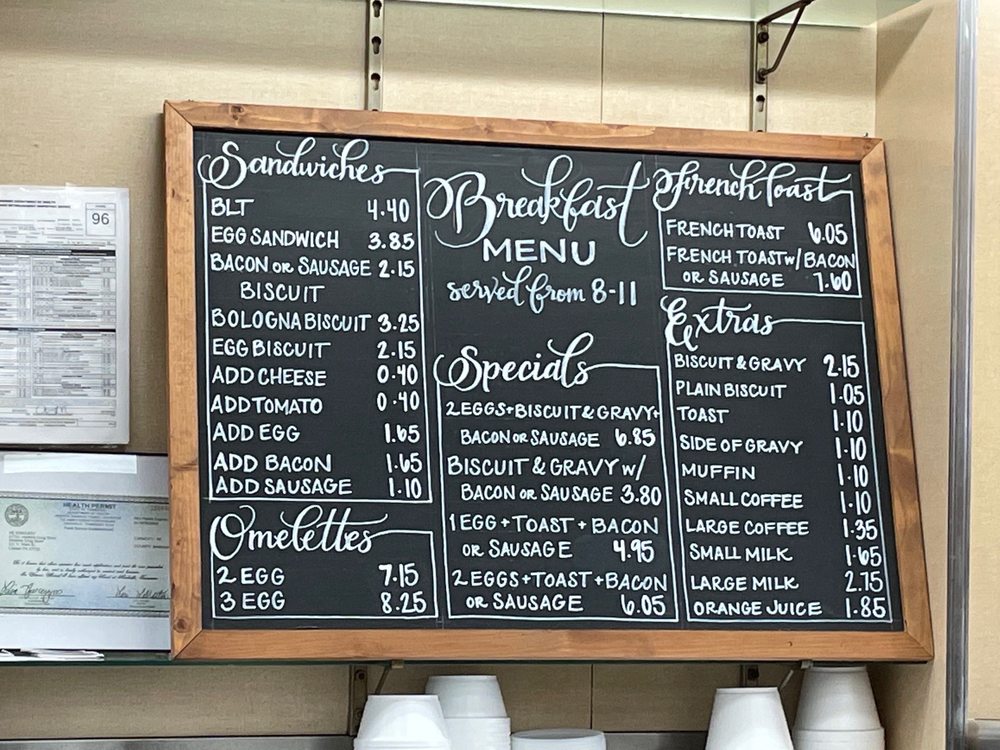 96
HEALTH PERMIT
Sandwiches
BLT 4.40
EGG SANDWICH 3.85
BACON OR SAUSAGE 2.15
BISCUIT
BOLOGNA BISCUIT 3.25
EGG BISCUIT 2.15
ADD CHEESE 0.40
ADD TOMATO 0.40
ADD EGG 1.65
ADD BACON 1.65
ADD SAUSAGE 1.10
Omelettes
2 EGG 7.15
3 EGG 8.25
Breakfast
MENU
served from 8-11
Specials
2 EGGS+BISCUIT & GRAVY+
BACON OR SAUSAGE 6.85
BISCUIT & GRAVY W/
BACON OR SAUSAGE 3.80
1 EGG + TOAST + BACON
OR SAUSAGE 4.95
2 EGGS+TOAST+BACON
OR SAUSAGE 6.05
French Toast
FRENCH TOAST 6.05
FRENCH TOAST w/ BACON
OR SAUSAGE 7.60
Extras
BISCUIT & GRAVY 2.15
PLAIN BISCUIT 1.05
TOAST 1.10
SIDE OF GRAVY 1.10
MUFFIN 1.10
SMALL COFFEE 1.10
LARGE COFFEE 1.35
SMALL MILK 1.65
LARGE MILK 2.75
ORANGE JUICE 1.85